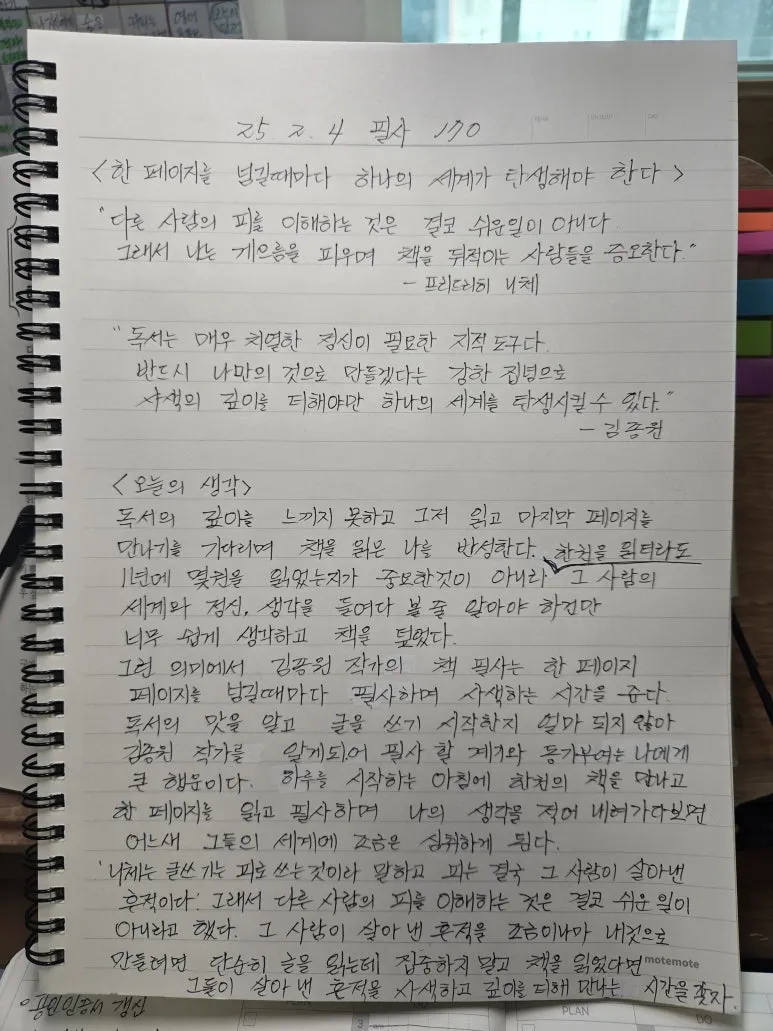 25. 2. 4 필사 170
<한 페이지를 넘길때마다 하나의 세계가 탄생해야 한다>
"다른 사람의 피를 이해하는 것은 결코 쉬운일이 아니다
그래서 나는 게으름을 피우며 책을 뒤적이는 사람들을 증오한다."
- 프리드리히 니체
"독서는 매우 치열한 정신이 필요한 지적 도구다.
반드시 나만의 것으로 만들겠다는 강한 집념으로
사색의 깊이를 더해야만 하나의 세계를 탄생시킬 수 있다."
- 김종원
<오늘의 생각>
독서의 깊이를 느끼지 못하고 그저 읽고 마지막 페이지를
만나기를 기다리며 책을 읽은 나를 반성한다. 한권을 읽더라도
1년에 몇권을 읽었는지가 중요한것이 아니라 그 사람의
세계와 정신, 생각을 들여다 볼 줄 알아야 하건만
너무 쉽게 생각하고 책을 덮었다.
그런 의미에서 김종원 작가의 책 필사는 한 페이지
페이지를 넘길때마다 필사하며 사색하는 시간을 준다.
독서의 맛을 알고 글을 쓰기 시작한지 얼마 되지 않아
김종원 작가를 알게되어 필사 할 계기와 동기부여는 나에게
큰 행운이다. 하루를 시작하는 아침에 한권의 책을 만나고
한 페이지를 읽고 필사하며 나의 생각을 적어 내려가다보면
어느새 그들의 세계에 조금은 심취하게 된다.
'니체는 글쓰기는 피로 쓰는것이라 말하고 피는 결국 그 사람이 살아낸
흔적이다.' 그래서 다른 사람의 피를 이해하는 것은 결코 쉬운 일이
아니라고 했다. 그 사람이 살아 낸 흔적을 조금이나마 내것으로
만들려면 단순히 글을 읽는데 집중하지 말고 책을 읽었다면
motemote
그들이 살아 낸 흔적을 사색하고 깊이를 더해 만나는 시간을 찾자.
공인인증서 갱신
PLAN
DO